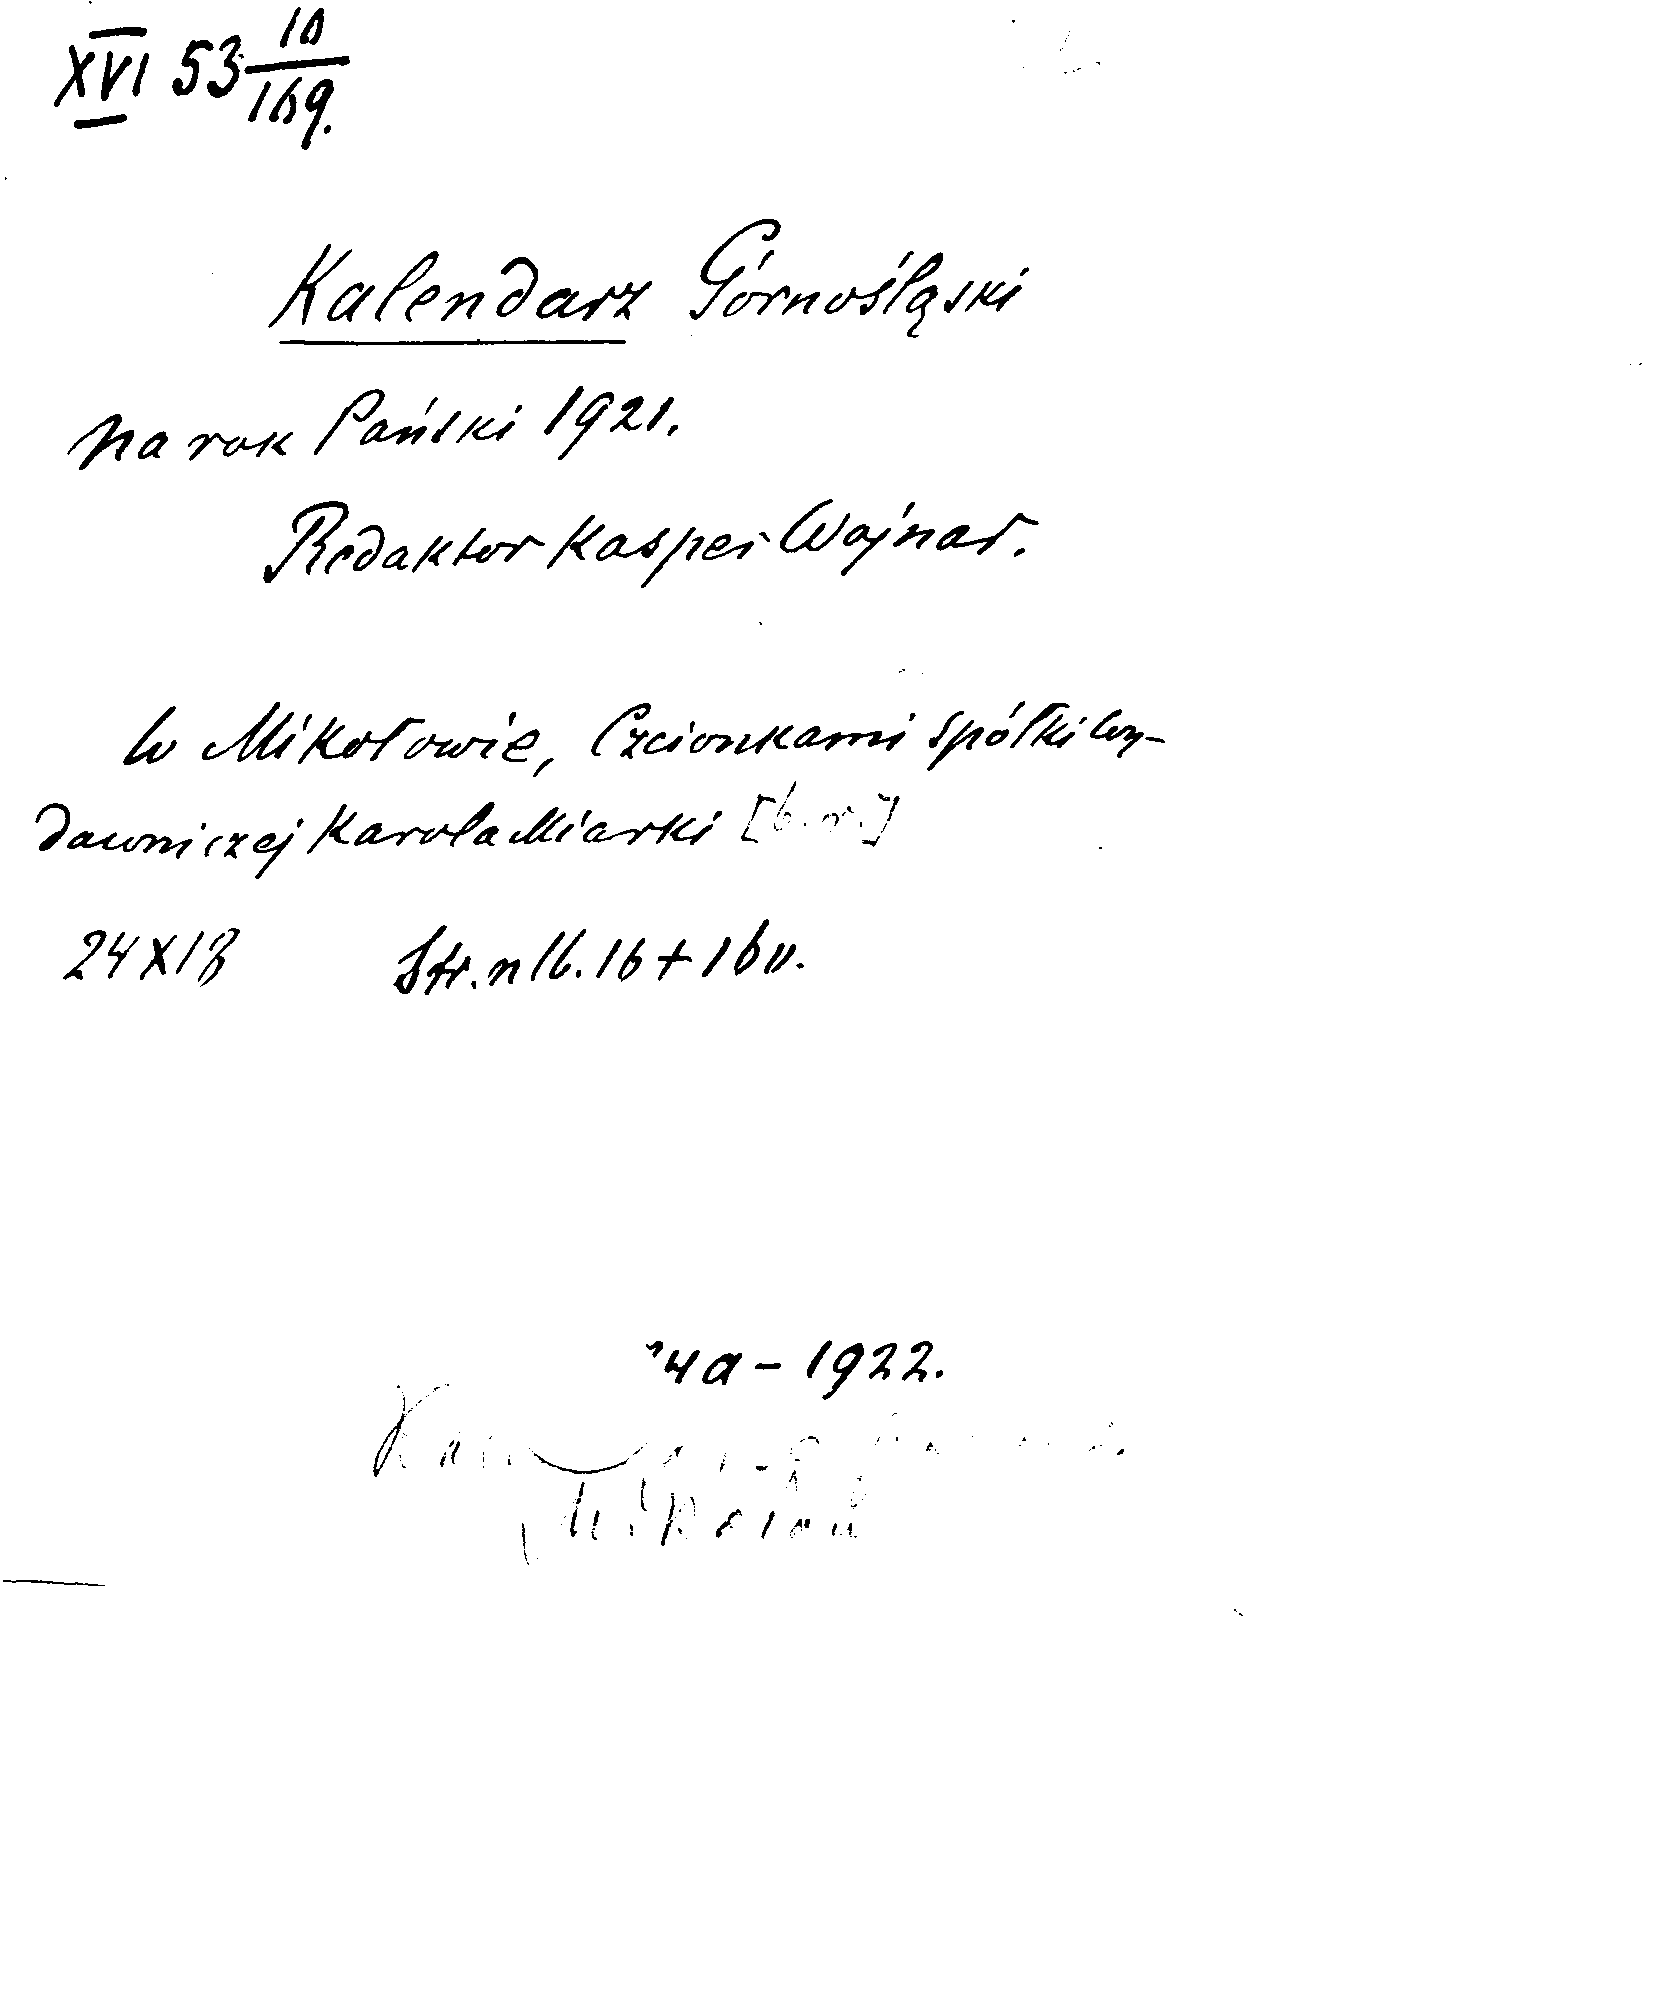 XVI 53 10/169.
Kalendarz Górnośląski
na rok Pański 1921.
Redaktor Kasper Wojnar.
W Mikołowie, Czcionkami Spółki Wy-
dawniczej Karola Miarki [b.r.]
24x18 Str. nlb. 16 + 160.
na - 1922.